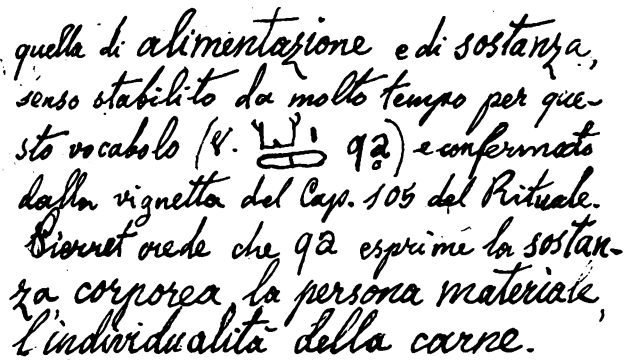 quella di alimentazione e di sostanza,
senso stabilito da molto tempo per que-
sto vocabolo (V. qa) e confermato
dalla vignetta del Cap. 105 del Rituale.
Pierret crede che qa esprime la sostan-
za corporea, la persona materiale,
l'individualità della carne.